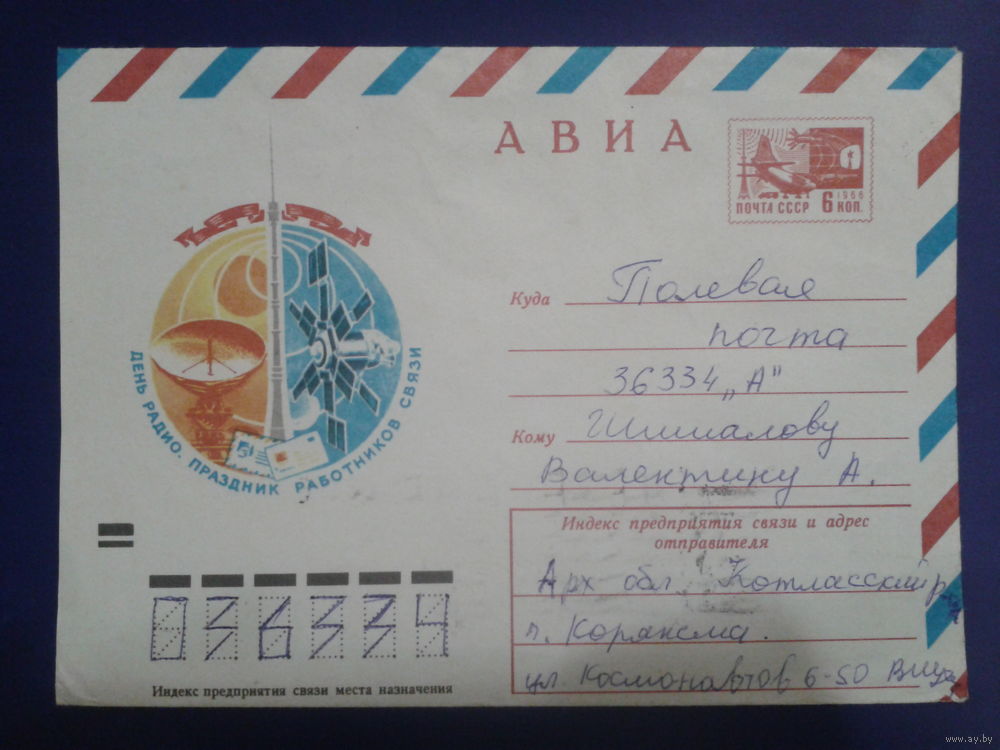 АВИА
ПОЧТА СССР 6 КОП.
1966
ДЕНЬ РАДИО. ПРАЗДНИК РАБОТНИКОВ СВЯЗИ
Куда Полевая
почта
36334 „А"
Кому Шишалову
Валентину А.
Индекс предприятия связи и адрес
отправителя
Арх обл. Котласский р
п. Коряжма.
ул. Космонавтов 6-50
036334
Индекс предприятия связи места назначения
www.ay.by